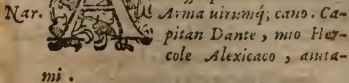 Nar. Arma uirumq́; cano. Ca-
pitan Dante, mio Her-
cole Alexicaco, aiuta-
mi.